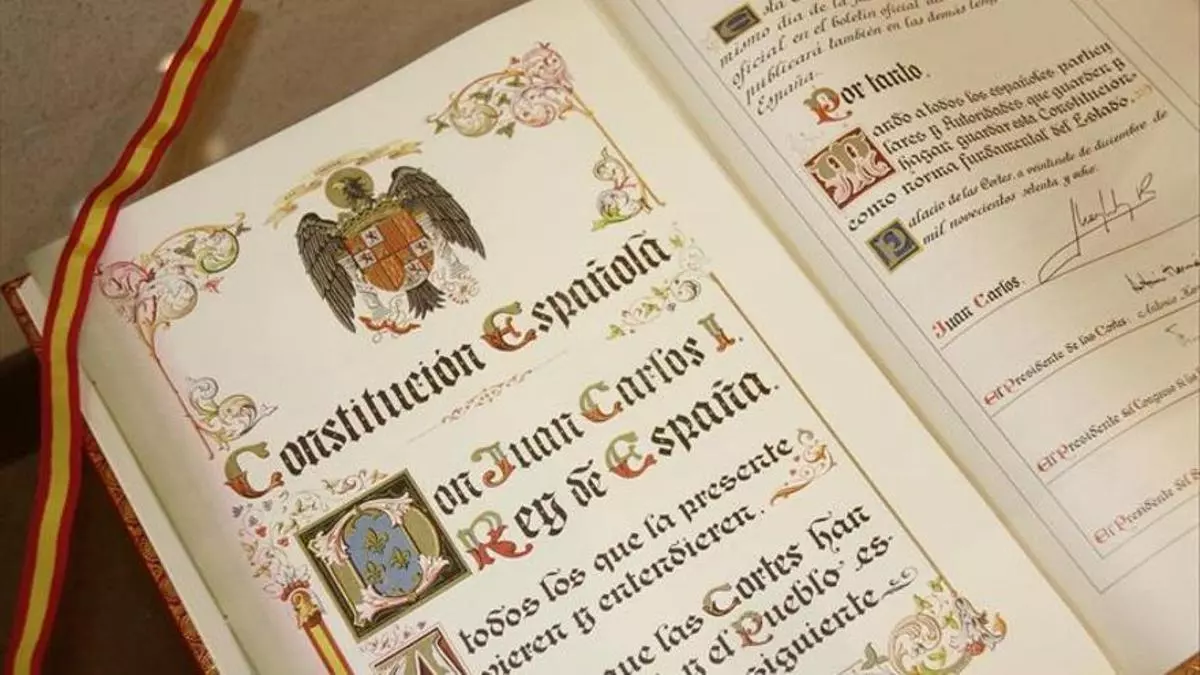 Constitución Española
Don Juan Carlos I.
Rey de España.
A todos los que la presente
vieren y entendieren.
que las Cortes han
y el Pueblo es-
siguiente
mismo día de la
oficial en el boletín oficial
publicará también en las demás
España.
Por tanto.
Mando a todos los españoles particu
lares y Autoridades que guarden y
hagan guardar esta Constitución
como norma fundamental del Estado.
Palacio de las Cortes, a veintisiete de diciembre de
mil novecientos setenta y ocho.
Juan Carlos.
El Presidente de las Cortes: Antonio
El Presidente del Congreso
El Presidente del